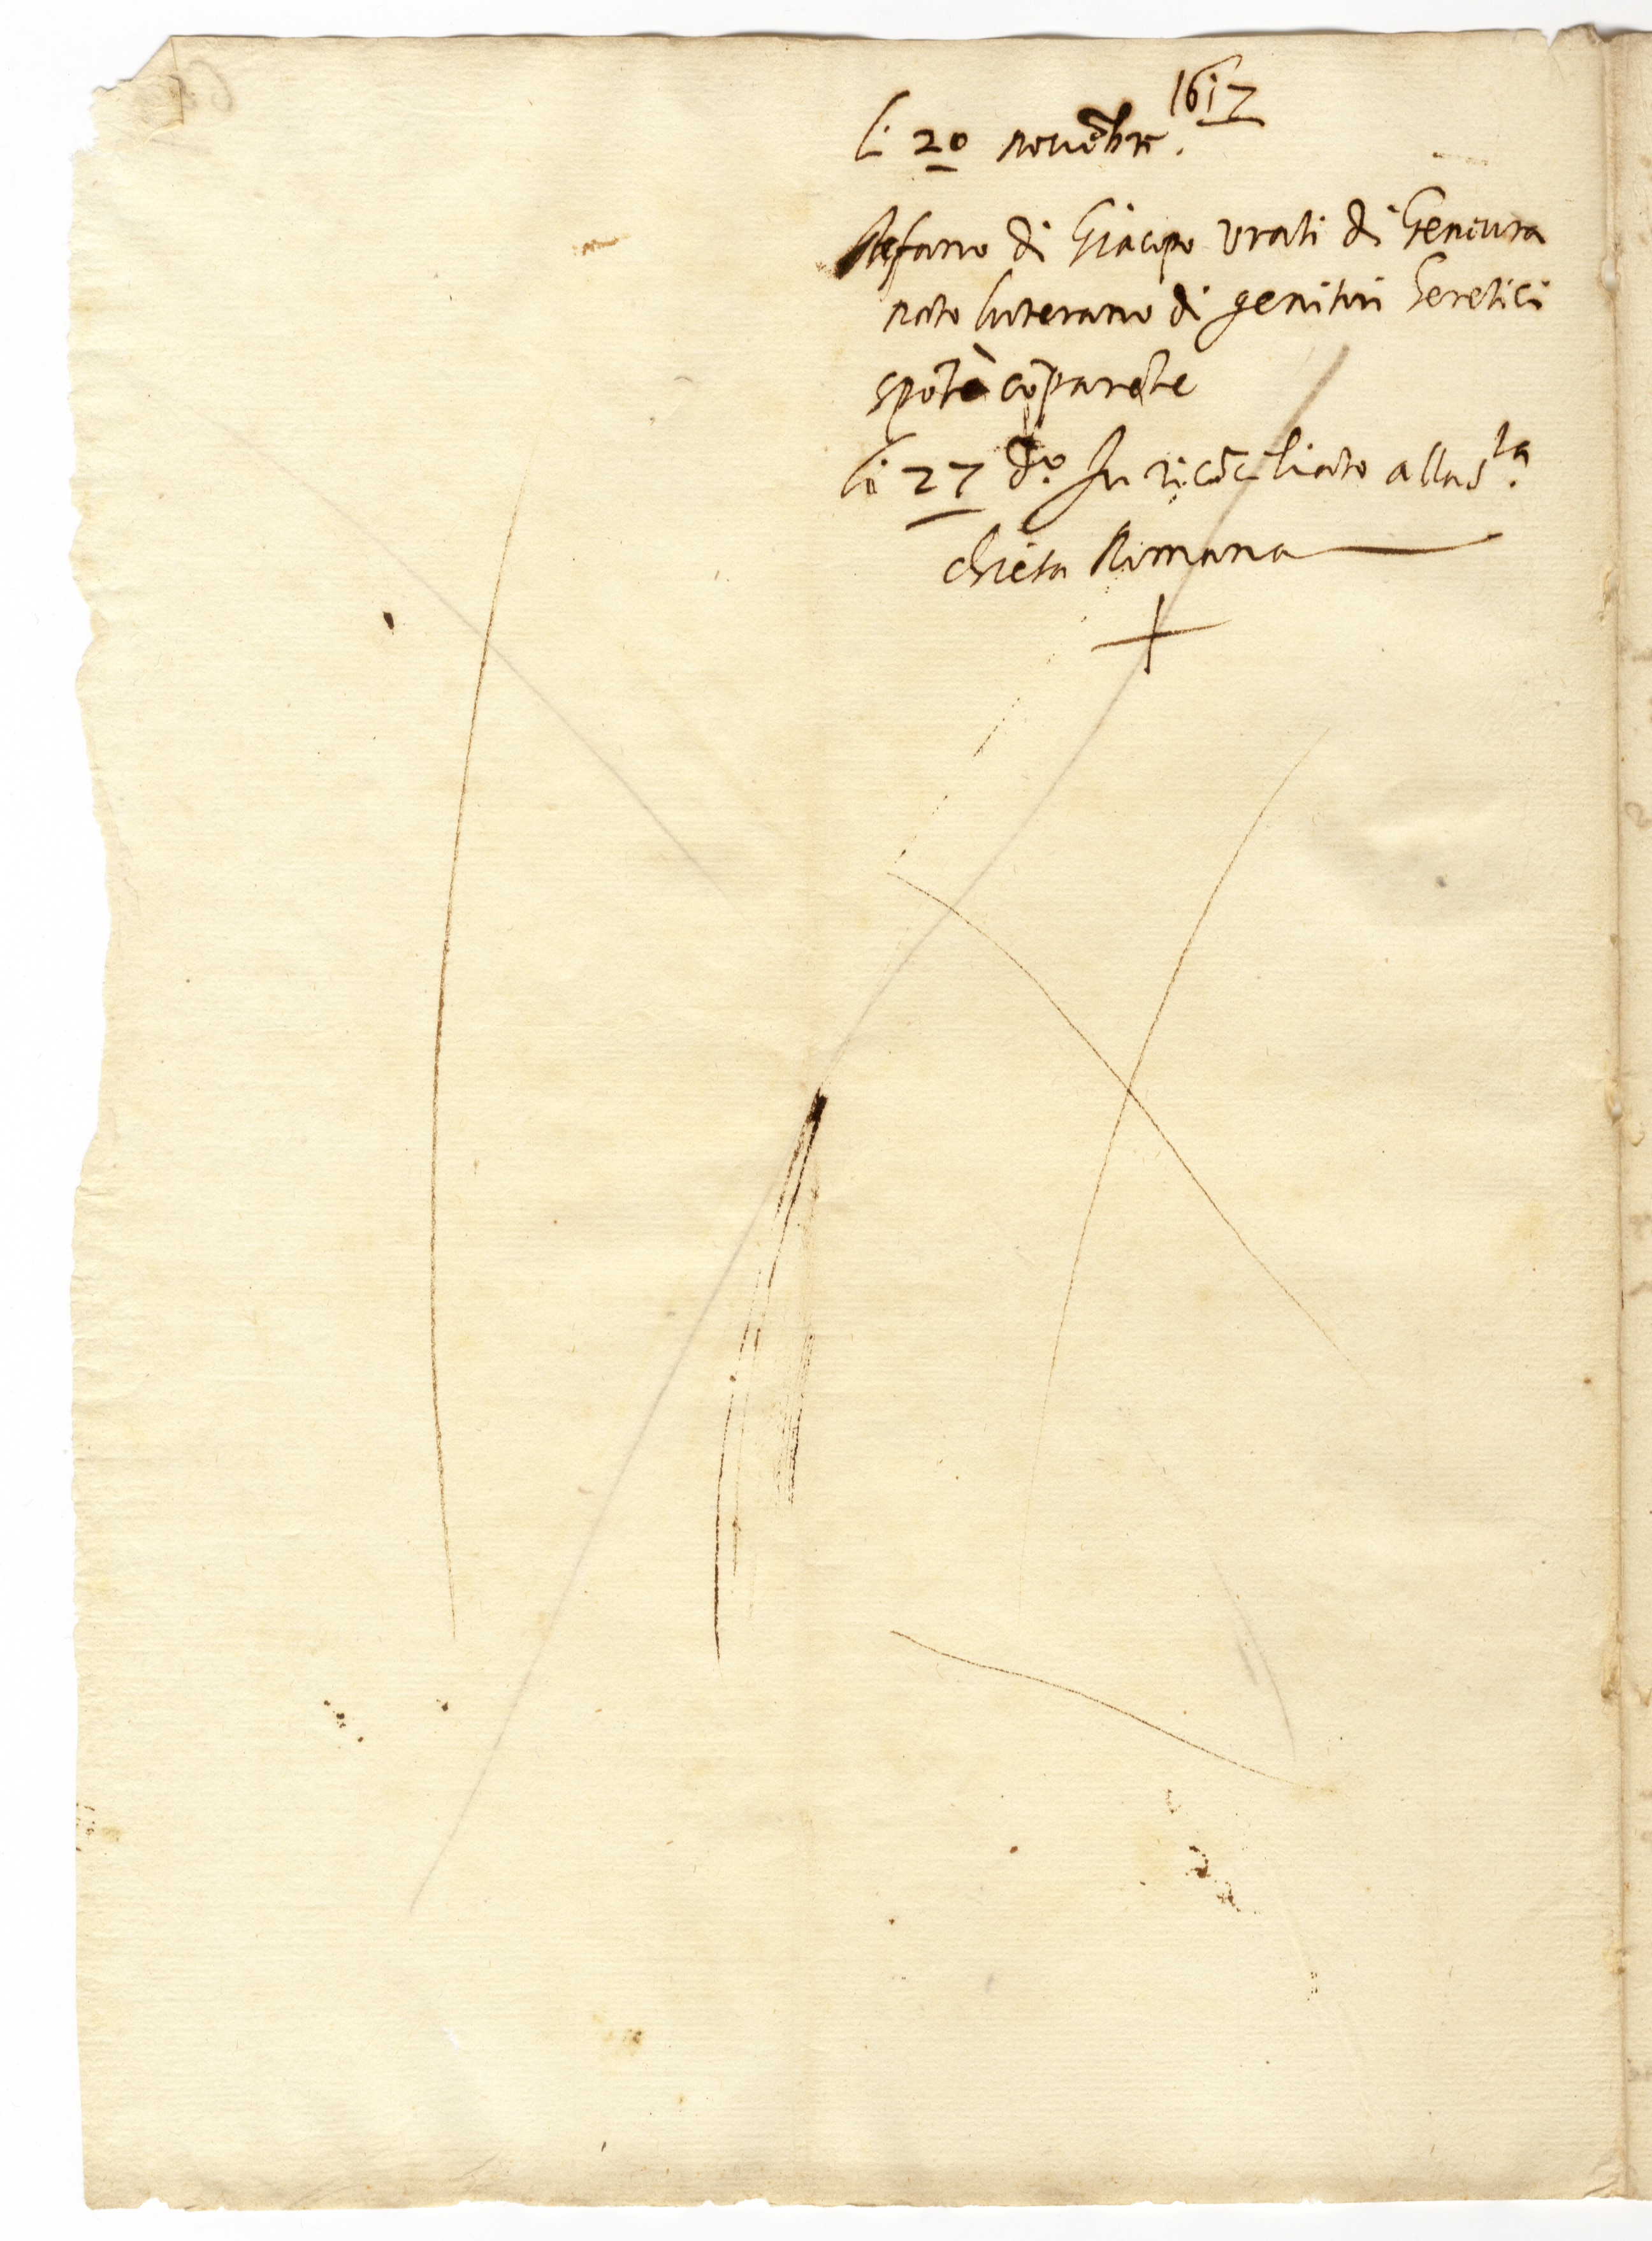 1617
li 20 novẽbre.
Stefano di Giacopo Vrati di Geneura
nato luterano di genitori heretici
spõtẽ cõparẽte
li 27 dº. fu ricõciliato alla s.ta
chiesa Romana